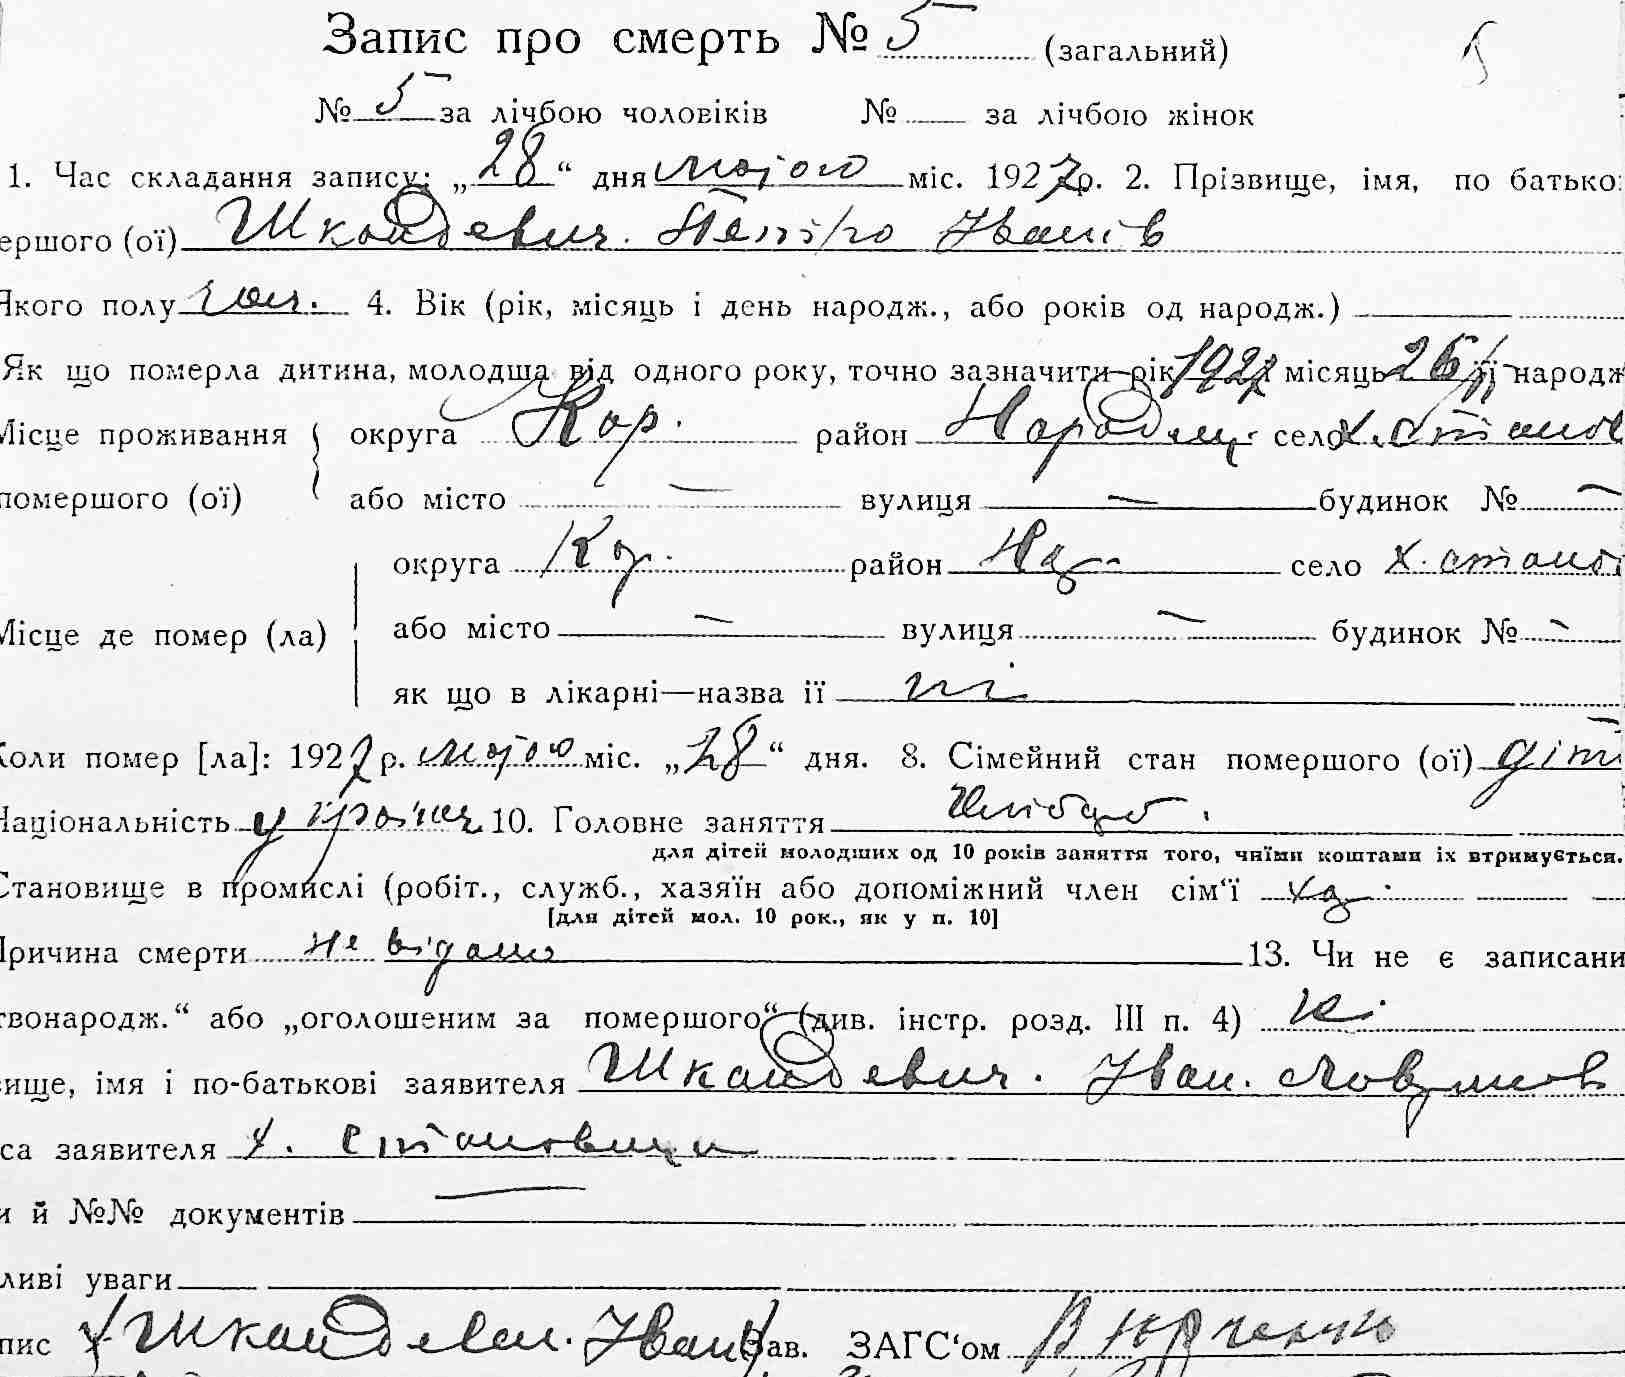 Запис про смерть № 5 (загальний) 5
№ 5 за лічбою чоловіків № — за лічбою жінок
1. Час складання запису: „28“ дня мајого міс. 1927 р. 2. Прізвище, імя, по батько
ершого (ої) Шкандевич. Петро Іванів
Якого полу чол. 4. Вік (рік, місяць і день народж., або років од народж.)
Як що померла дитина, молодша від одного року, точно зазначити рік 1927 місяць 26/ її народж
Місце проживання округа Кор. район Народиц. село х. станов
помершого (ої) або місто — вулиця — будинок № —
округа Кор. район На село х. станов
Місце де помер (ла) або місто — вулиця — будинок № —
як що в лікарні—назва її ні
Коли помер [ла]: 1927 р. міс. „28“ дня. 8. Сімейний стан помершого (ої) діт
Національність україн 10. Головне заняття Хлібороб.
для дітей молодших од 10 років заняття того, чиїми коштами їх втримується.
Становище в промислі (робіт., служб., хазяїн або допоміжний член сім‘ї хаз.
[для дітей мол. 10 рок., як у п. 10]
Причина смерти не відомо 13. Чи не є записани
твонародж.“ або „оголошеним за помершого“ (див. інстр. розд. III п. 4) ні.
вище, імя і по-батькові заявителя Шкандевич. Іван.
са заявителя х. становище
и й №№ документів —
ливі уваги
пис Шкандевич. Іван Зав. ЗАГС‘ом